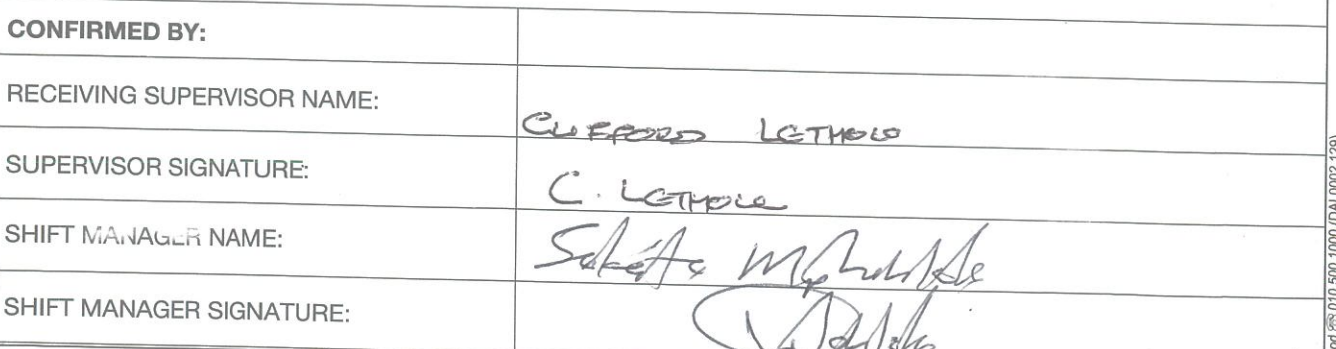 CONFIRMED BY:
RECEIVING SUPERVISOR NAME: CLIFFORD LETHOLE
SUPERVISOR SIGNATURE: C. LETHOLE
SHIFT MANAGER NAME:
SHIFT MANAGER SIGNATURE:
010 500 1000 (DAL0002.129)